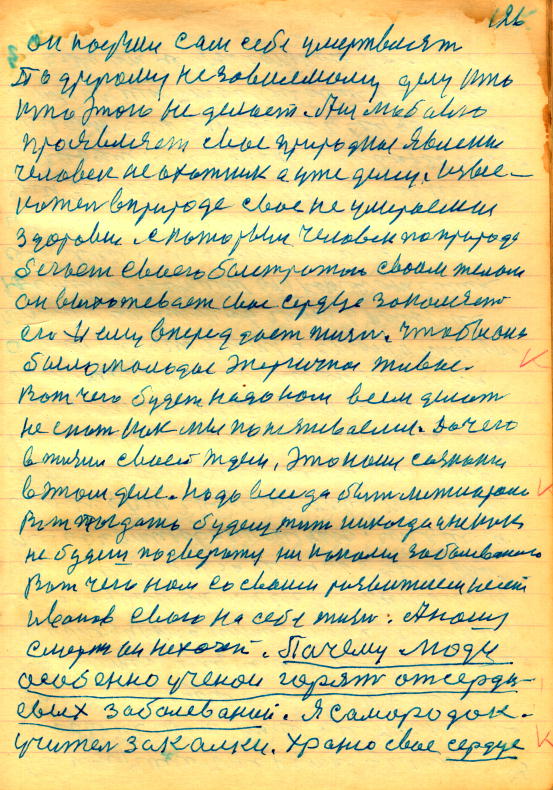 186
он научил сам себе умертвлять
По другому независимому делу кто
кто этого не делает. Они
проявляет свое природное явлени
человек не охотник а уже делец.
в природе свое не умираемии
здоровия. с которым человек по природе
бегает своего быстротою своим телом
он вытотевает свое сердце законяет
его И ему вперед дает жизн. чтобы оно
было молодое энергичное живое.
Вот чего будет надо нам всем делат
не спат как мы потягиваемся. Да чего
в жизни своей ждем, это наши сознания
в этом деле. надо всегда быт
Вот тогдат будеш жит никогда и никак
не будеш подверетжу ни каким заболеваниго
Вот чего нам со своим развитием несет
иванов своего на себе жизн. А нашу
смерт он нехочет. Пачему люди
особенно ученои горят от серде-
свых заболеваний. Я самородок.
учител закалки. храню свое сердце